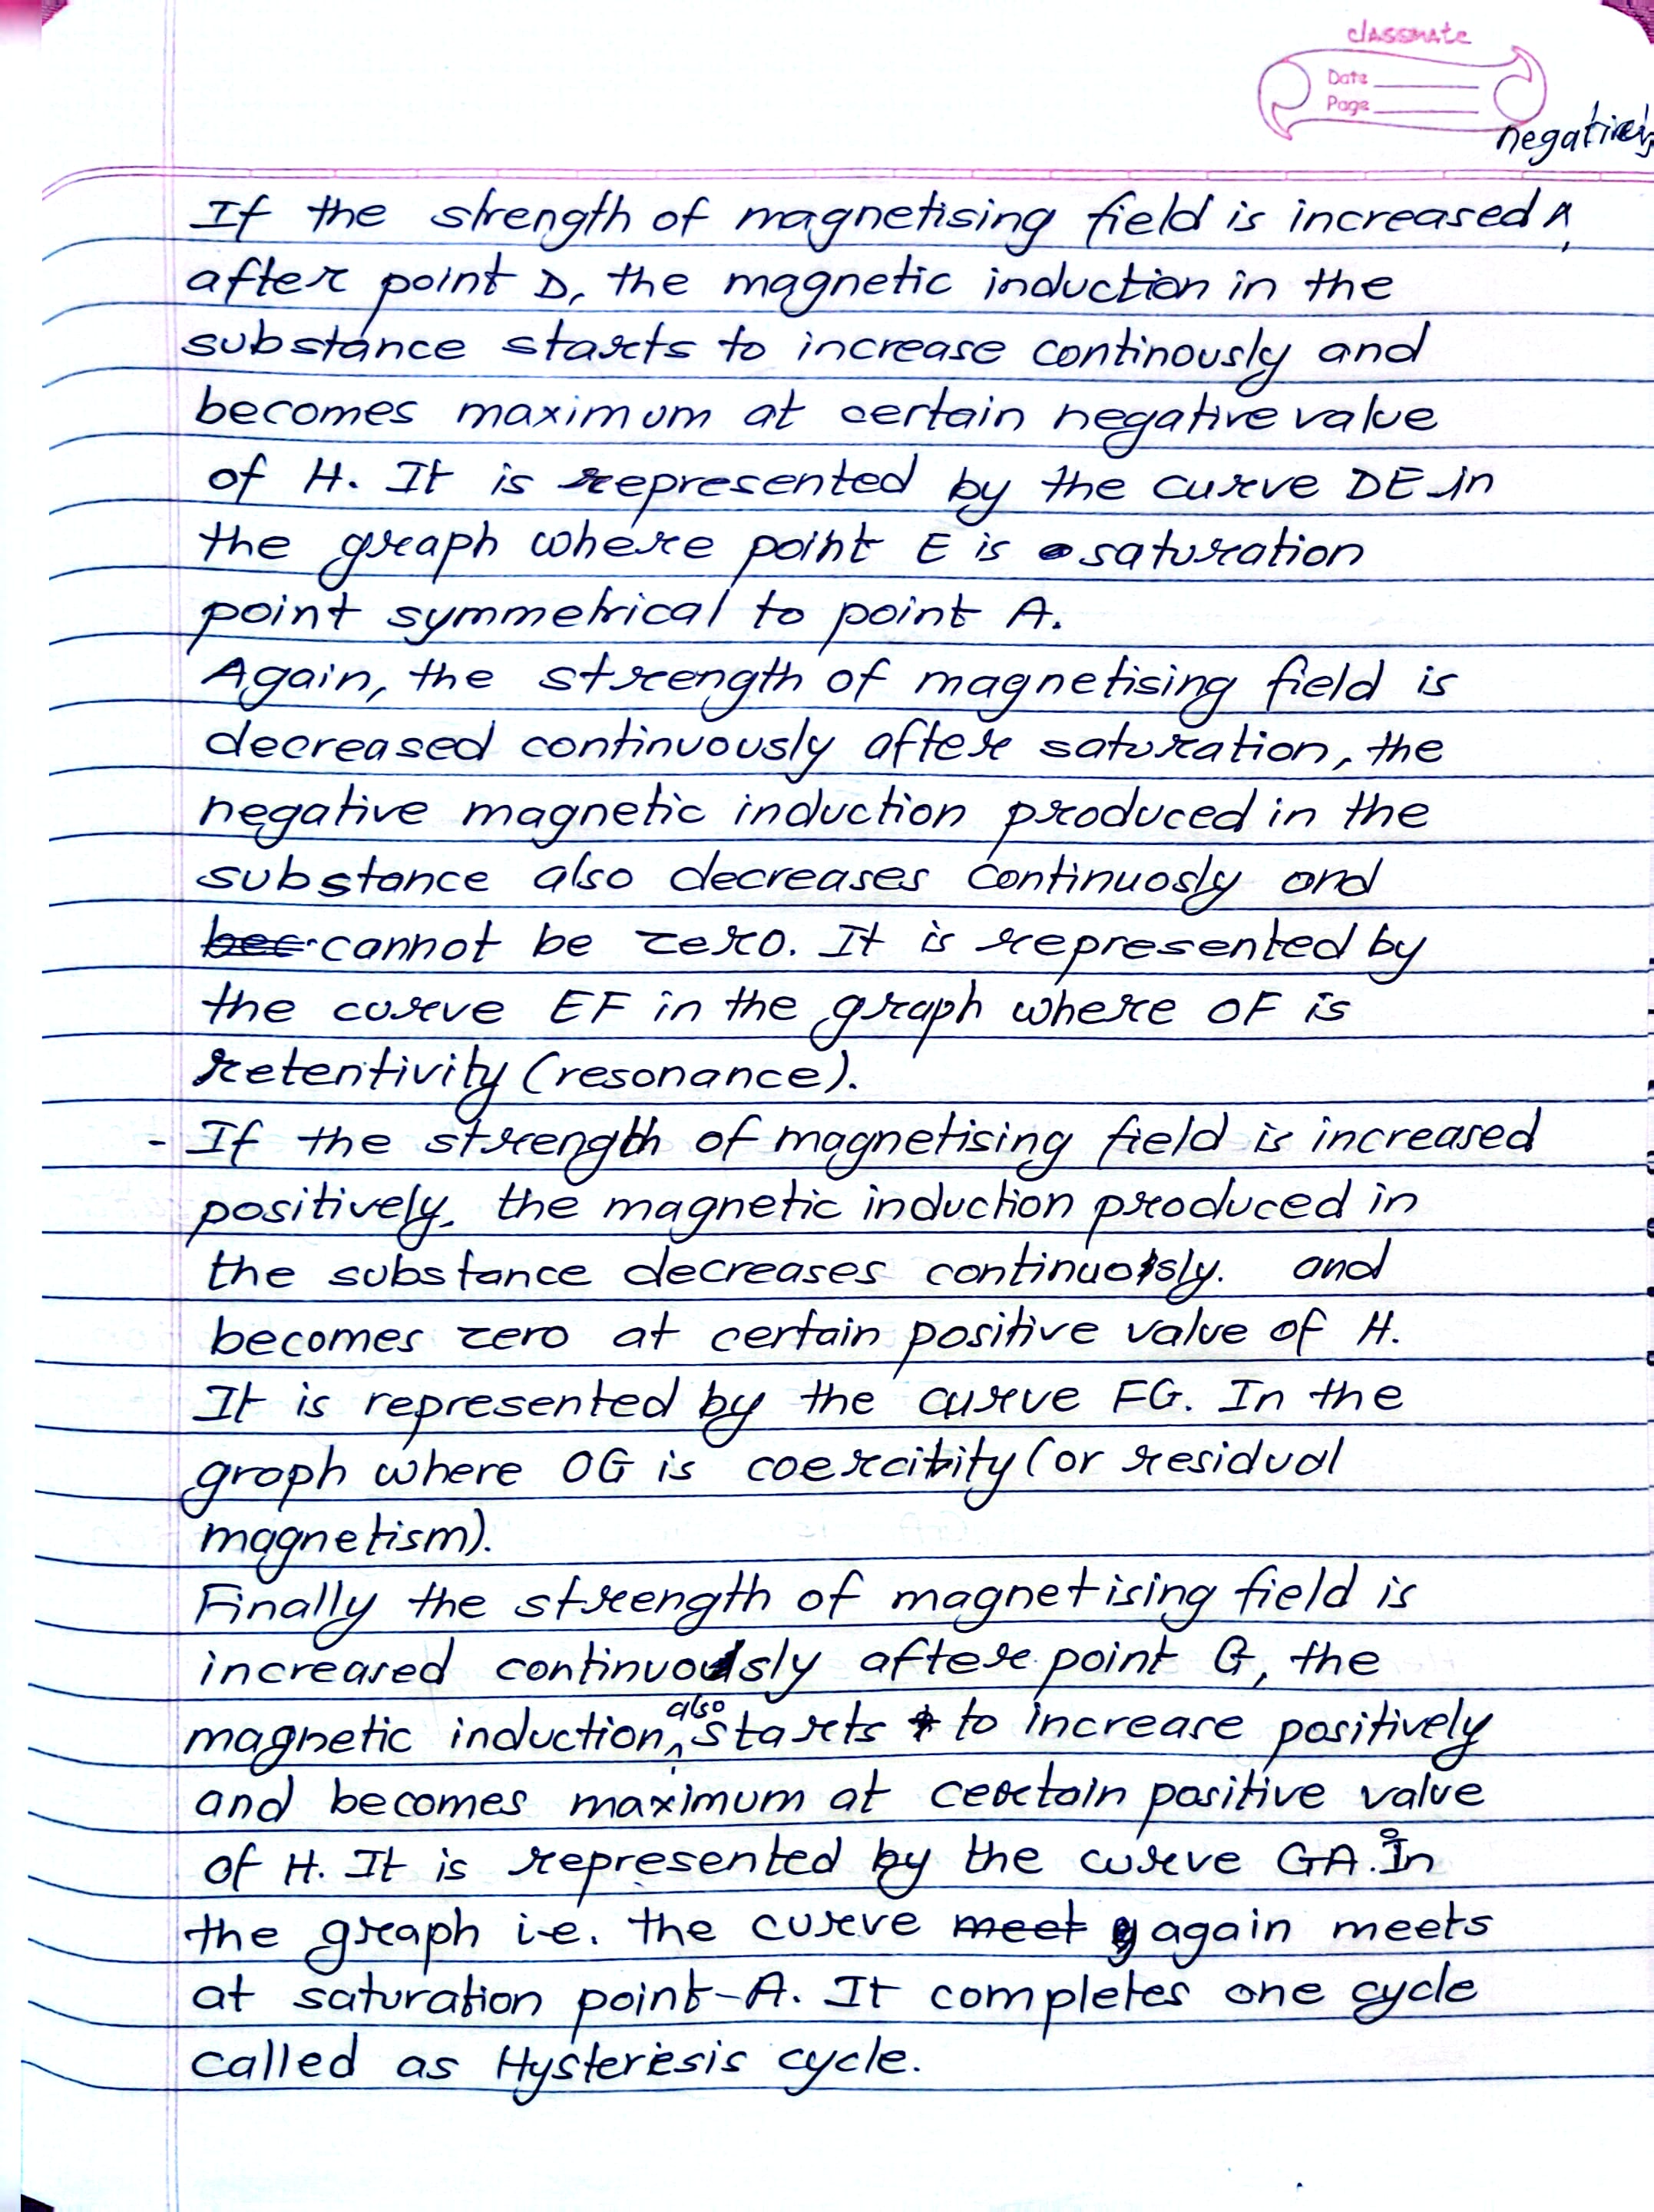 classmate
Date
Page
negatively
If the strength of magnetising field is increased ^
after point D, the magnetic induction in the
substance starts to increase continously and
becomes maximum at certain negative value
of H. It is represented by the curve DE in
the graph where point E is saturation
point symmetrical to point A.
Again, the strength of magnetising field is
decreased continuously after saturation, the
negative magnetic induction produced in the
substance also decreases continuosly and
bec cannot be zero. It is represented by
the curve EF in the graph where OF is
retentivity (resonance).
- If the strength of magnetising field is increased
positively, the magnetic induction produced in
the substance decreases continuously. and
becomes zero at certain positive value of H.
It is represented by the curve FG. In the
graph where OG is coercibity (or residual
magnetism).
Finally the strength of magnetising field is
increased continuously after point G, the
also
magnetic induction, ^ starts to increase positively
and becomes maximum at certain positive value
of H. It is represented by the curve GA. In
the graph i.e. the curve meet again meets
at saturation point-A. It completes one cycle
called as Hysteresis cycle.